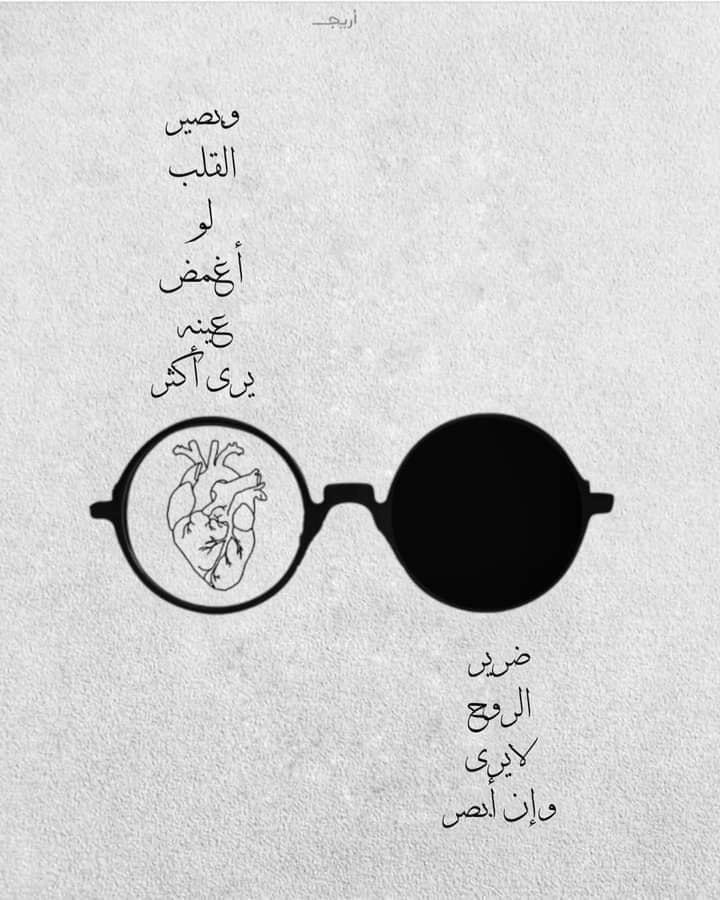 أريجـ
وبصير
القلب
لو
أغمض
عينه
يرى أكثر
ضرير
الروح
لايرى
وإن أبصر